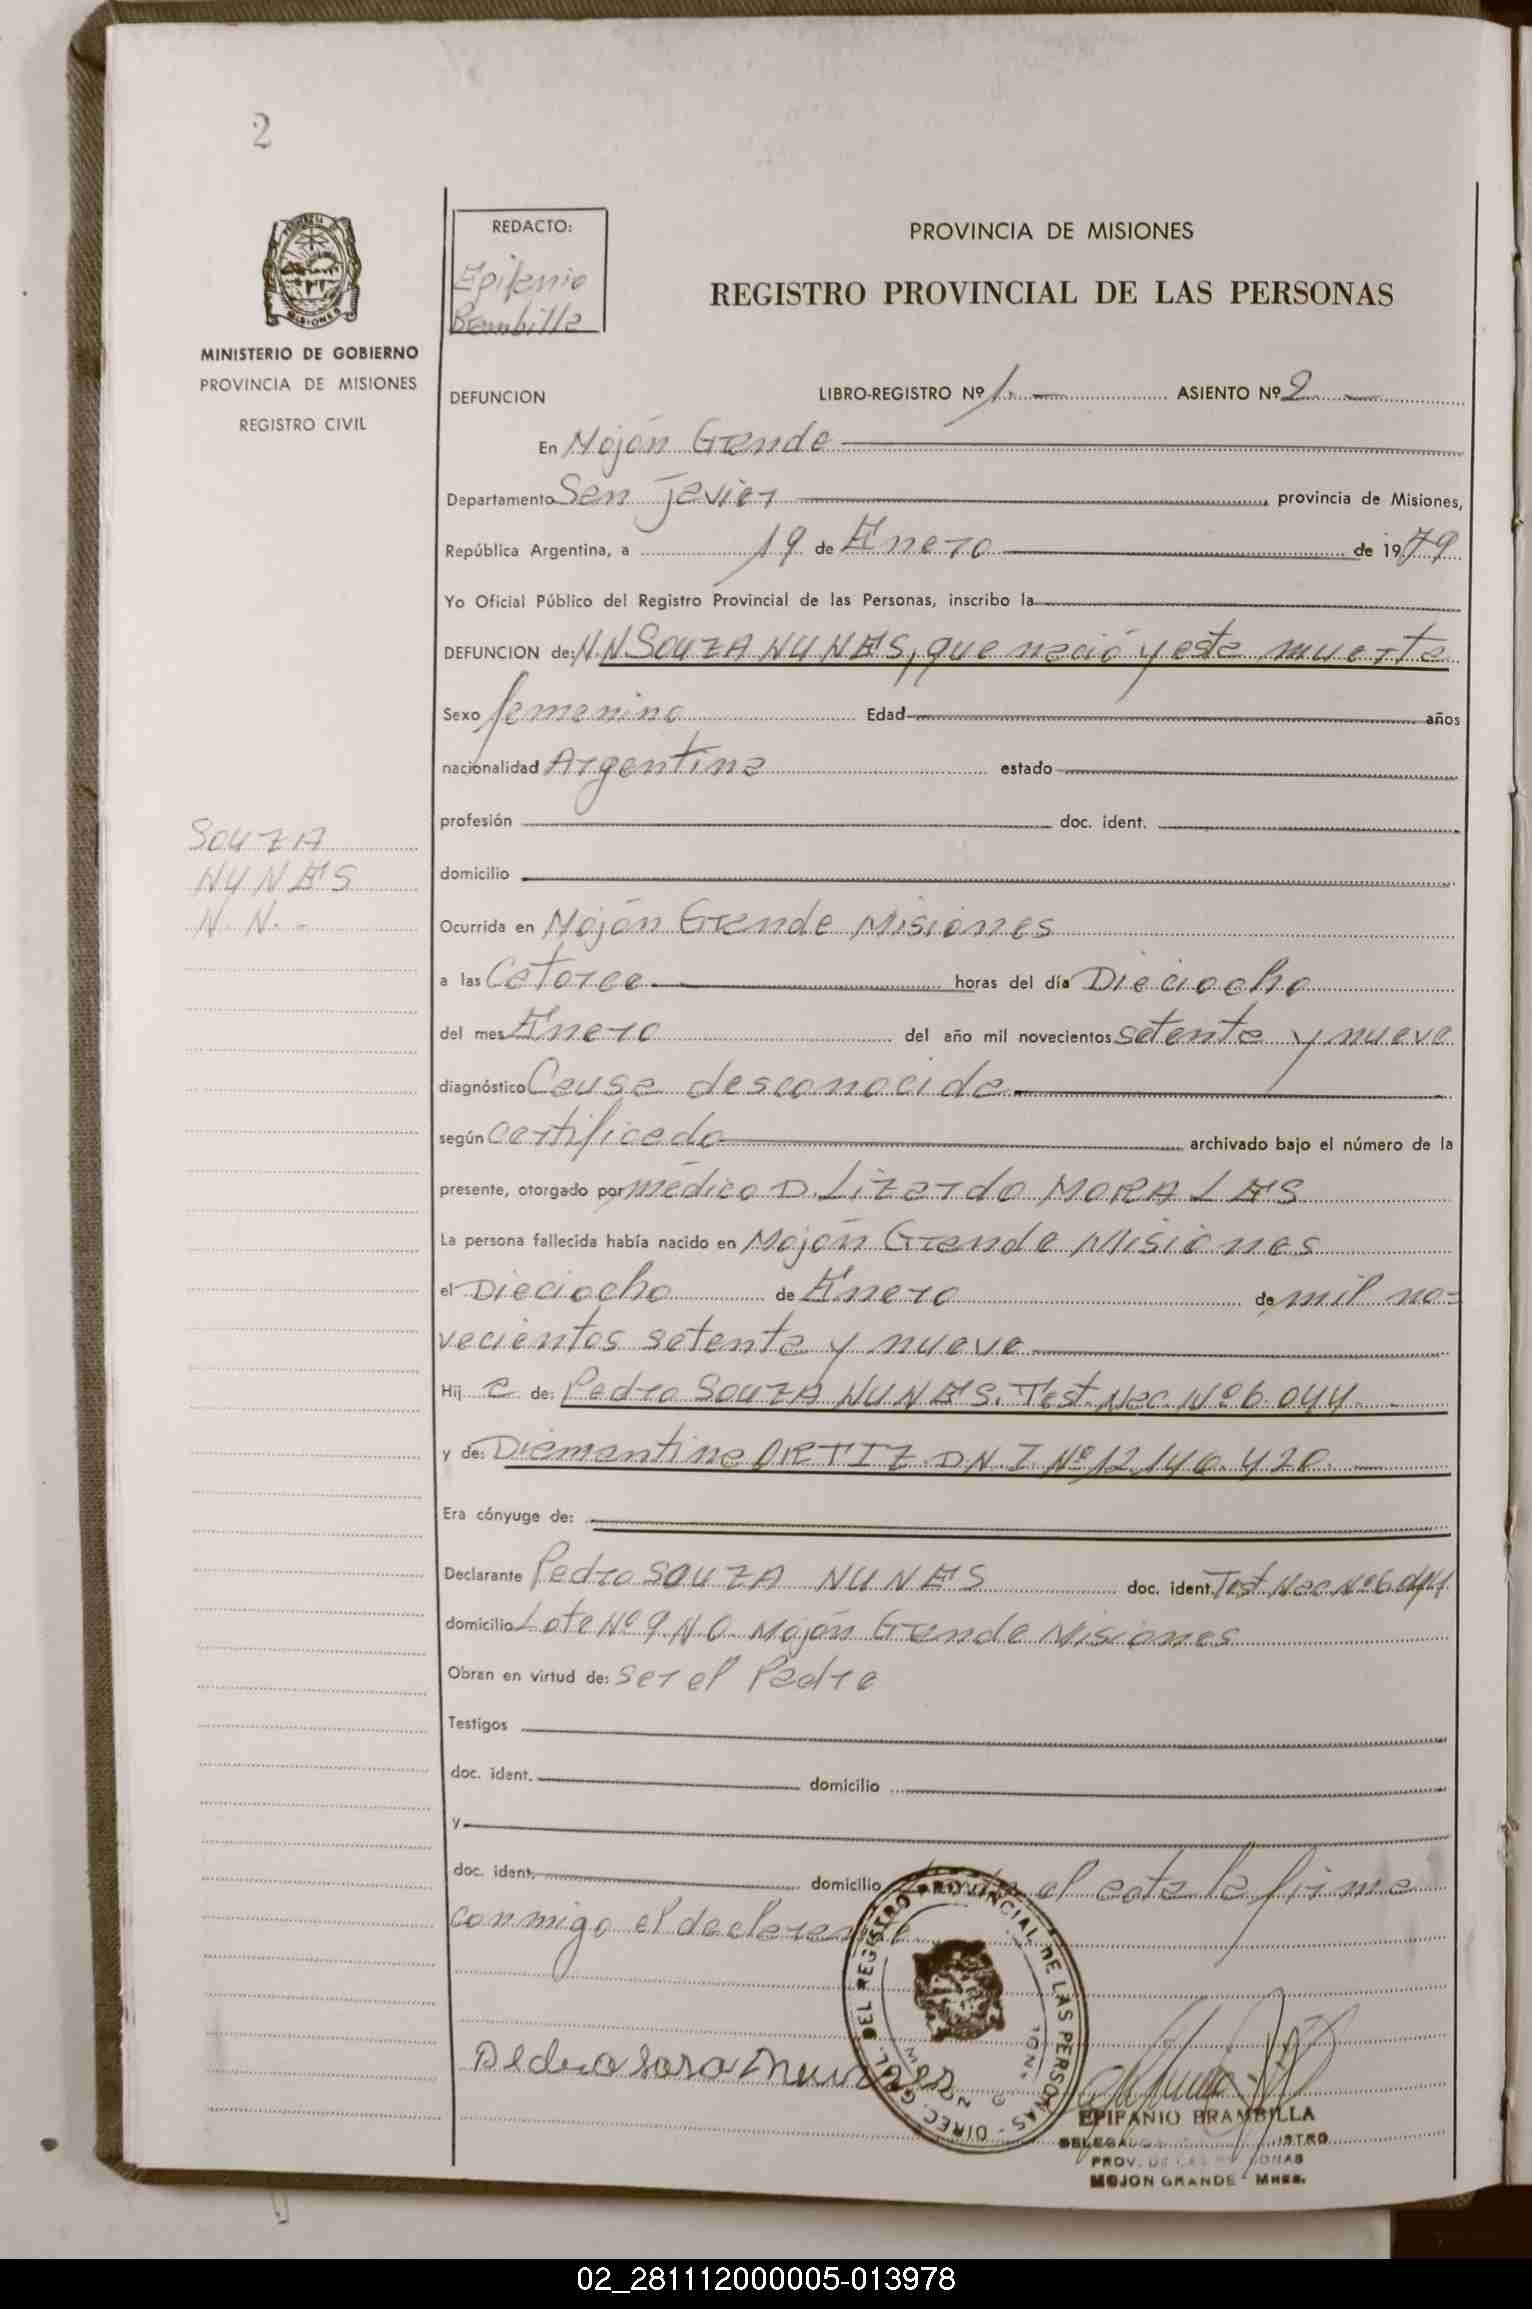 2
REDACTO:
Epifanio
Brambilla
PROVINCIA DE MISIONES
REGISTRO PROVINCIAL DE LAS PERSONAS
MINISTERIO DE GOBIERNO
PROVINCIA DE MISIONES
REGISTRO CIVIL
DEFUNCION LIBRO-REGISTRO Nº 1. — ASIENTO Nº 2 —
En Mojón Grande
Departamento San Javier, provincia de Misiones,
República Argentina, a 19 de Enero de 1979
Yo Oficial Público del Registro Provincial de las Personas, inscribo la
DEFUNCION de: N.N SOUZA NUNES, que nació y esta muerta
Sexo femenino Edad años
nacionalidad Argentina estado
profesión doc. ident.
SOUZA
NUNES
N. N. -
domicilio
Ocurrida en Mojón Grande Misiones
a las Catorce horas del día Dieciocho
del mes Enero del año mil novecientos setenta y nueve
diagnóstico Causa desconocida
según certificado archivado bajo el número de la
presente, otorgado por médico D. Lizardo MORALES
La persona fallecida había nacido en Mojón Grande Misiones
el Dieciocho de Enero de mil no-
vecientos setenta y nueve
Hij a de: Pedro SOUZA NUNES. Test. Nac. Nº 6.044
y de: Diamantina ORTIZ. D.N.I. Nº 12.146.420. —
Era cónyuge de:
Declarante Pedro SOUZA NUNES doc. ident. Test Nac Nº 6.044
domicilio Lote Nº 9 N O Mojón Grande Misiones
Obran en virtud de: ser el Padre
Testigos
doc. ident. domicilio
y
doc. ident. domicilio el acta la firma
conmigo el declarante
DIREC. GRAL. DEL REGISTRO PROVINCIAL DE LAS PERSONAS
EPIFANIO BRAMBILLA
PROV. DE LAS PERSONAS
MOJON GRANDE - Mnes.
02_281112000005-013978